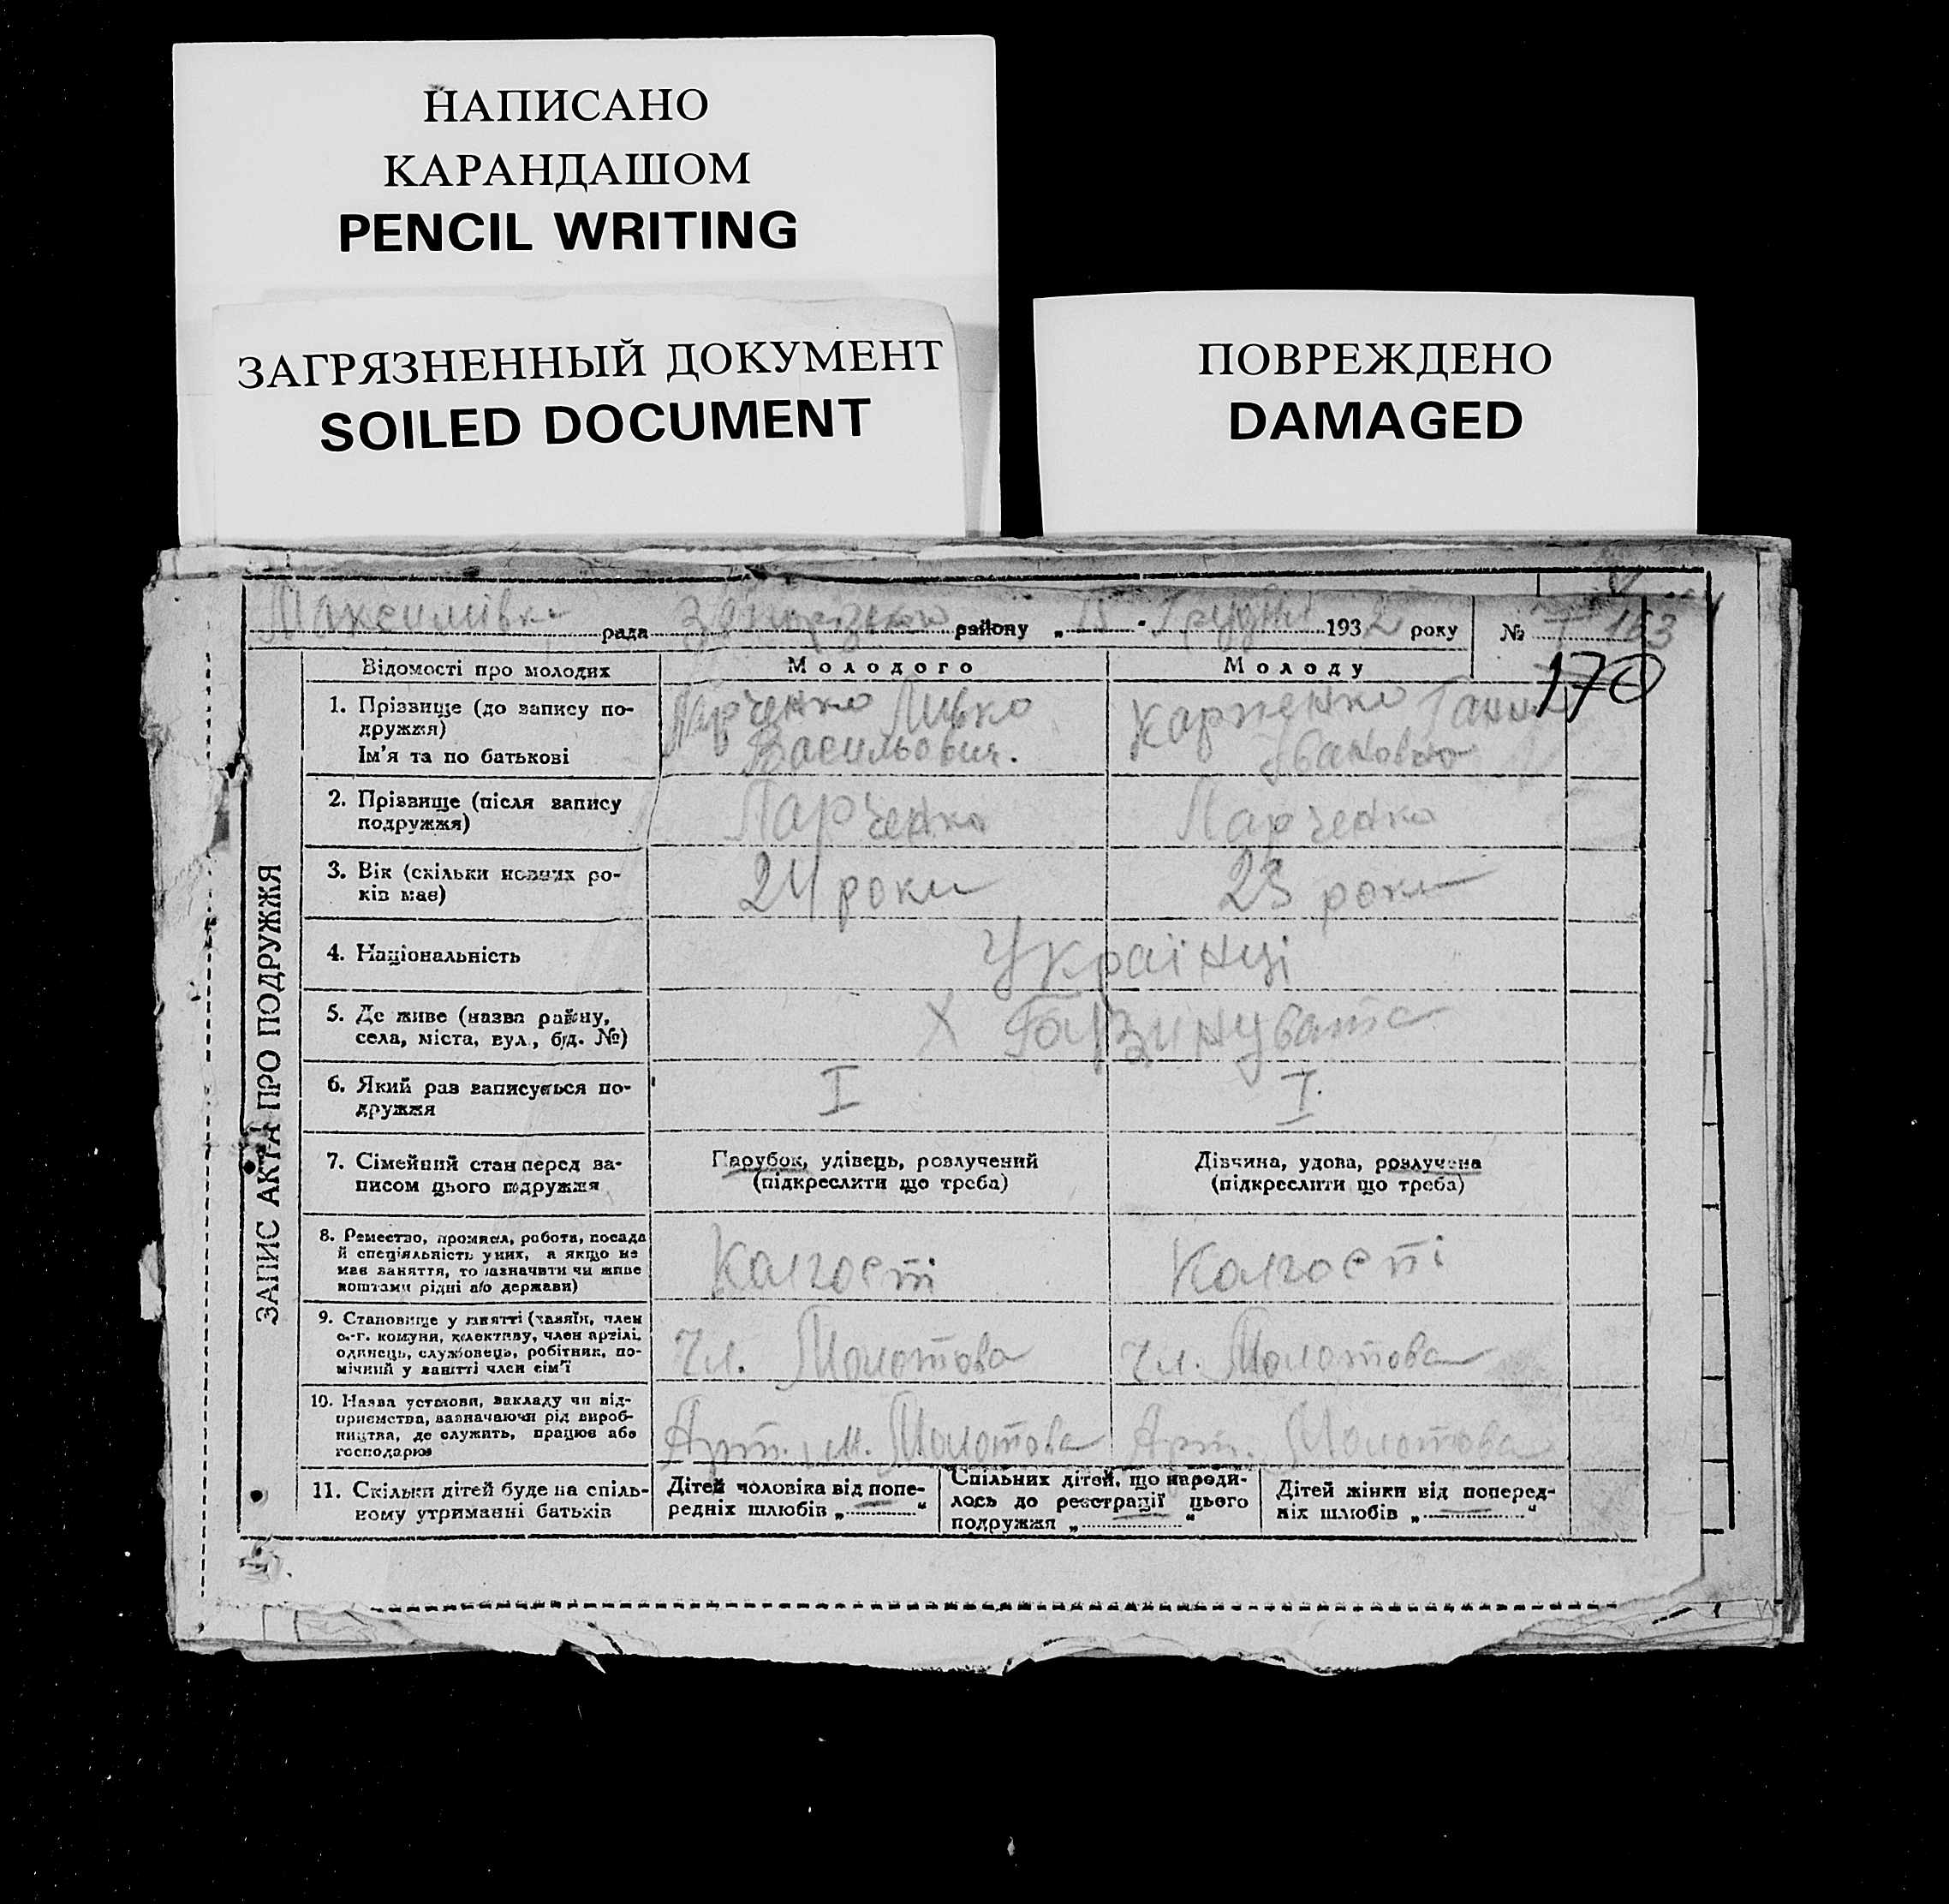 НАПИСАНО
КАРАНДАШОМ
PENCIL WRITING
ЗАГРЯЗНЕННЫЙ ДОКУМЕНТ
SOILED DOCUMENT
ПОВРЕЖДЕНО
DAMAGED
рада району „15" Грудня 1932 року № 163
170
ЗАПИС АКТА ПРО ПОДРУЖЖЯ
Відомості про молодих Молодого Молоду
1. Прізвище (до запису по-
дружжя)
Ім'я та по батькові
Парченко Васильович.
Карпенко Ганна Івановна
2. Прізвище (після запису
подружжя)
Парченко Парченко
3. Вік (скільки повних ро-
ків має)
24 роки 23 роки
4. Національність
Українці
5. Де живе (назва району,
села, міста, вул., буд. №)
Х
6. Який раз записується по-
дружжя
I I.
7. Сімейний стан перед за-
писом цього подружжя
Парубок, удівець, розлучений
(підкреслити що треба)
Дівчина, удова, розлучена
(підкреслити що треба)
8. Ремество, промисл, робота, посада
й спеціяльність у них, а якщо не
має заняття, то зазначити чи живе
коштами рідні або держави)
Колгості Колгості
9. Становище у занятті (хазяїн, член
с.-г. комуни, колективу, член артілі,
одинець, службовець, робітник, по-
мічний у занятті член сім'ї
Чл. Молотова Чл. Молотова
10. Назва установи, закладу чи під-
приємства, зазначаючи рід вироб-
ництва, де служить, працює або
господарює
Арт. ім. Молотова Арт. Молотова
11. Скільки дітей буде на спіль-
ному утриманні батьків
Дітей чоловіка від попе-
редніх шлюбів „ — "
Спільних дітей, що народи-
лось до реєстрації цього
подружжя „ — "
Дітей жінки від поперед-
ніх шлюбів „ — "